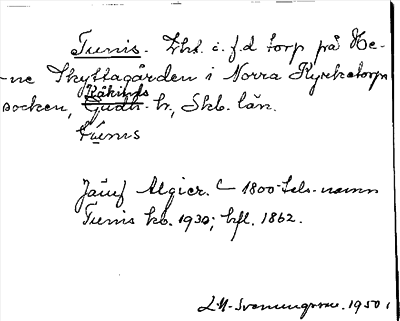 Tunis. Lht. i. f.d torp på He-
-ne Skyttagården i Norra Kyrketorps
socken, Kåkinds Gudh. h., Skb. län.
Túnıs
Jämf Algier. 1800-tals-namn
Tunis kb. 1930; hfl. 1862.
L.M. Svanungsson. 1950